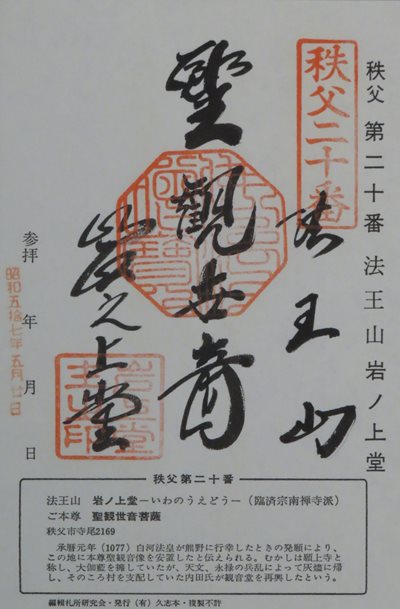 秩父 第二十番 法王山岩ノ上堂
秩父二十番
法王山
聖観世音
岩之上堂
参拝 年 月 日
昭和五拾七年五月廿日
秩父第二十番
法王山 岩ノ上堂－いわのうえどう－（臨済宗南禅寺派）
ご本尊 聖観世音菩薩
秩父市寺尾2169
承暦元年（1077）白河法皇が熊野に行幸したときの発願により、
この地に本尊聖観音像を安置したと伝えられる。むかしは願上寺と
称し、大伽藍を擁していたが、天文、永禄の兵乱によって灰燼に帰
し、そのころ村を支配していた内田氏が観音堂を再興したという。
編輯札所研究会・発行（有）久志本・複製不許